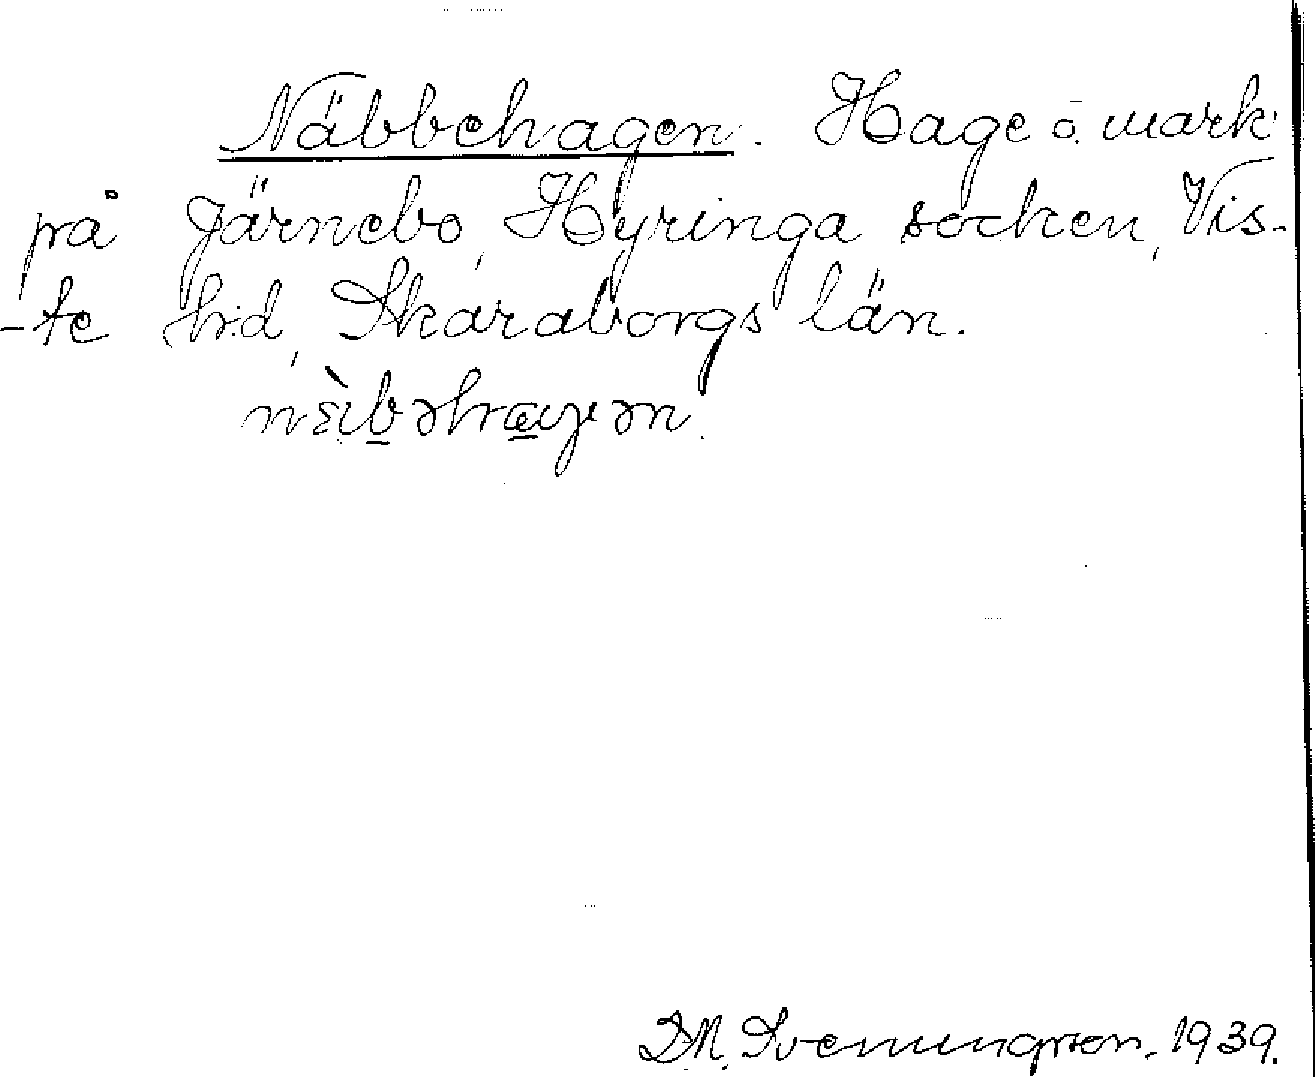 Näbbehagen. Hage o. mark
på Järnebo, Hyringa socken, Vis-
-te hd, Skaraborgs län.
D.N. Svenungsson. 1939.